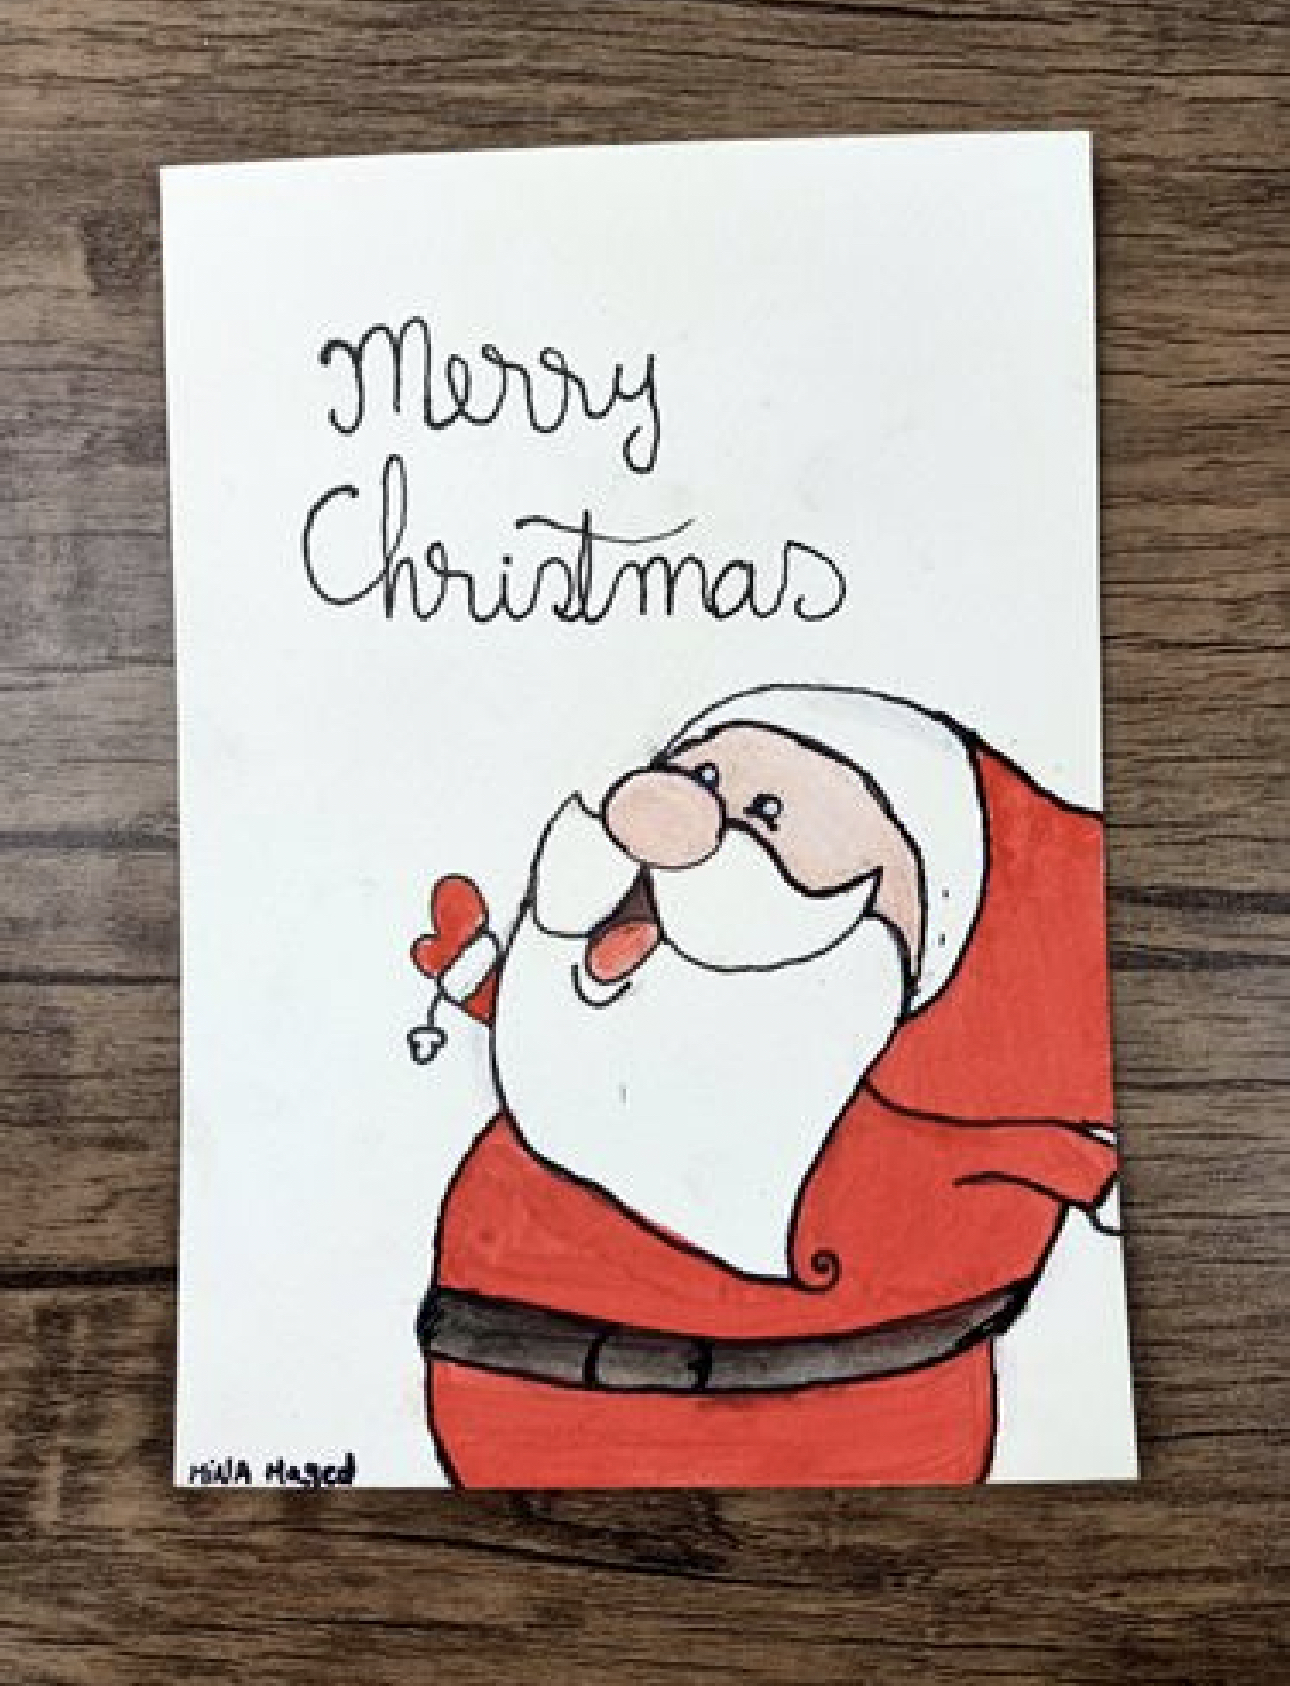 Merry
Christmas
MiNA Maged